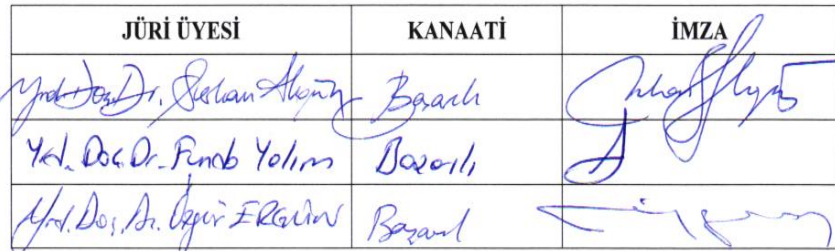 JÜRİ ÜYESİ KANAATİ İMZA
Yrd. Doç. Dr. Başarılı
Yrd. Doç. Dr. Funda Yalım Başarılı
Yrd. Doç. Dr. Özgür ERGÜN Başarılı